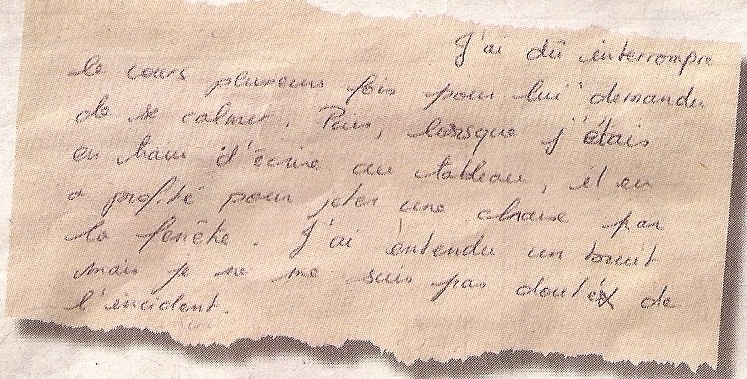 J'ai dû interrompre
le cours plusieurs fois pour lui demander
de se calmer. Puis, lorsque j'étais
en train d'écrire au tableau, il en
a profité pour jeter une chaise par
la fenêtre. J'ai entendu un bruit
mais je ne me suis pas douté de
l'incident.